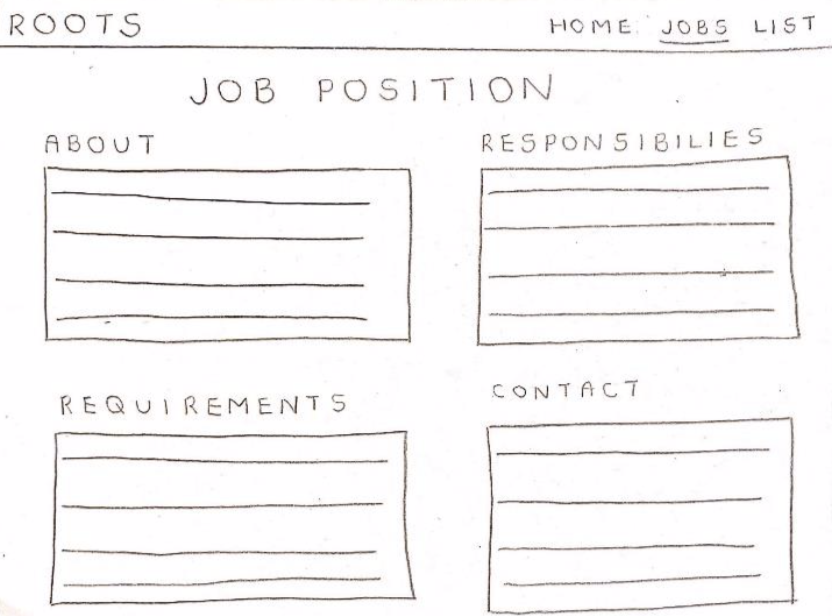 ROOTS
HOME JOBS LIST
JOB POSITION
ABOUT
RESPONSIBILIES
REQUIREMENTS
CONTACT